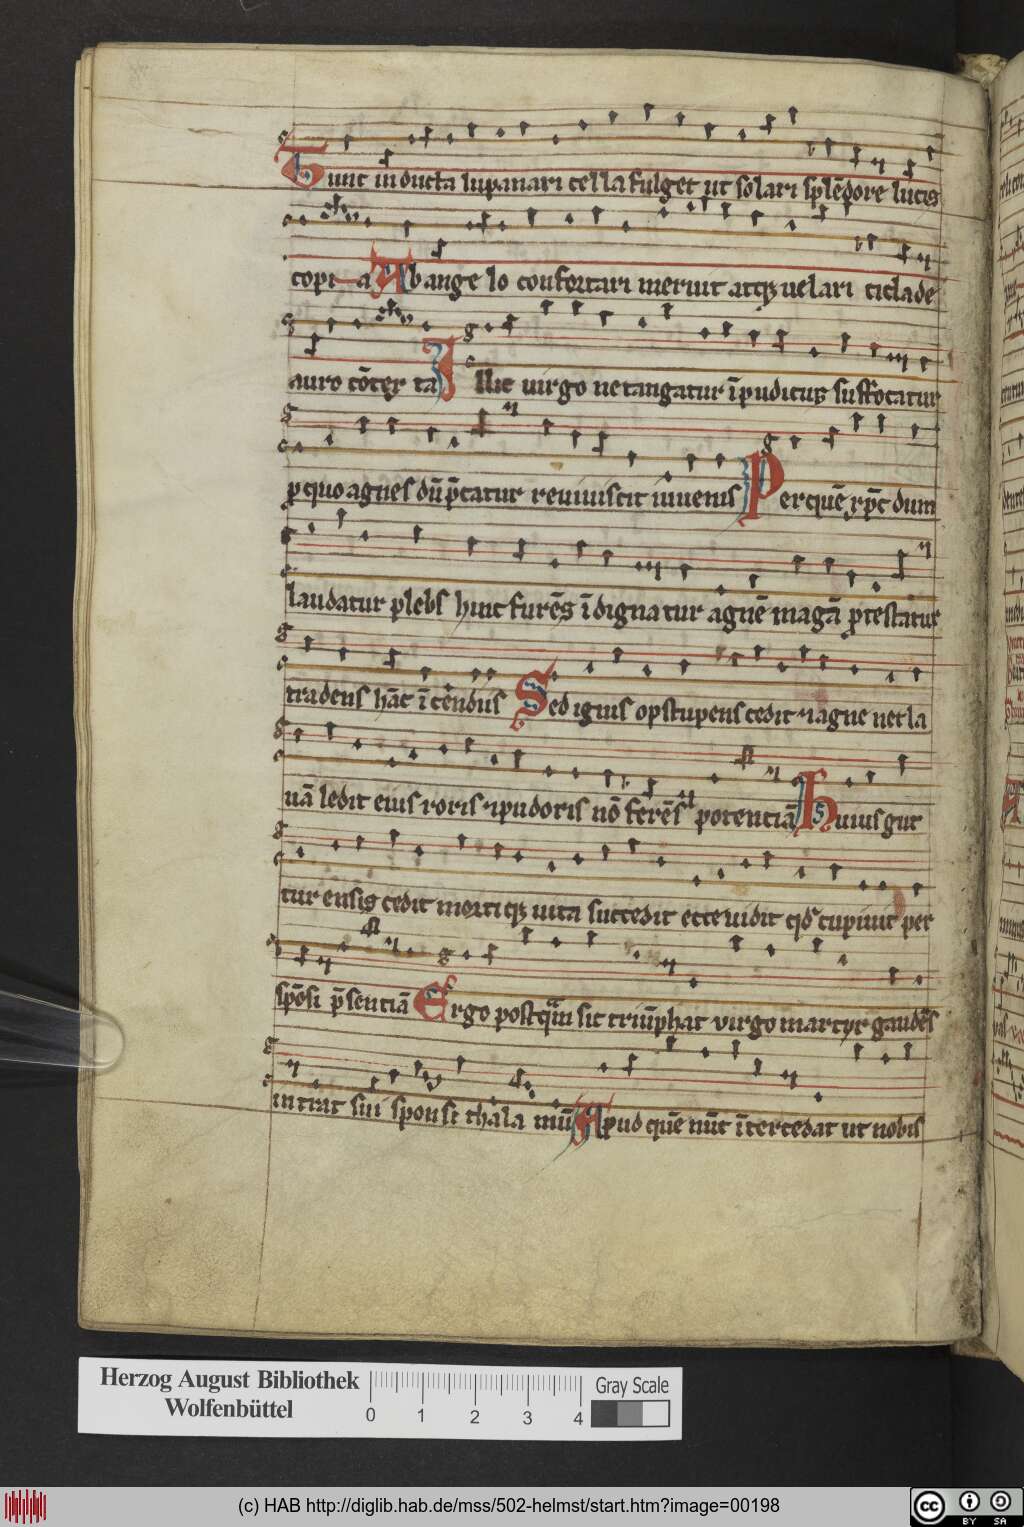 Tunc inducta lupanari cella fulget ut solari splēdore lucis
copi a Ab angelo confortari meruit atq; uelari ciclade
auro cōtex ta Illic virgo ne tangatur īpudicus suffocatur
p quo agnes dū p̄catur reuiuiscit iuuenis Per quē xp̄c dum
laudatur plebs hinc furēs īdignatur agnē magā protestatur
tradens hāc ī cendiis Sed ignis opstupens cedit ⁊ agne nec la
nā ledit eius roris ⁊ pudoris nō ferēs potenciā Huius gut
tur ensis cedit morti q; uita succedit ecce uidit qd cupiuit per
spōsi p̄senciā Ergo postquam sic triūphat virgo martyr gaudēs
intrat sui sponsi thala mū Apud quē nūc ītercedat ut nobis
Herzog August Bibliothek
Wolfenbüttel
0 1 2 3 4
Gray Scale
(c) HAB http://diglib.hab.de/mss/502-helmst/start.htm?image=00198
cc BY SA